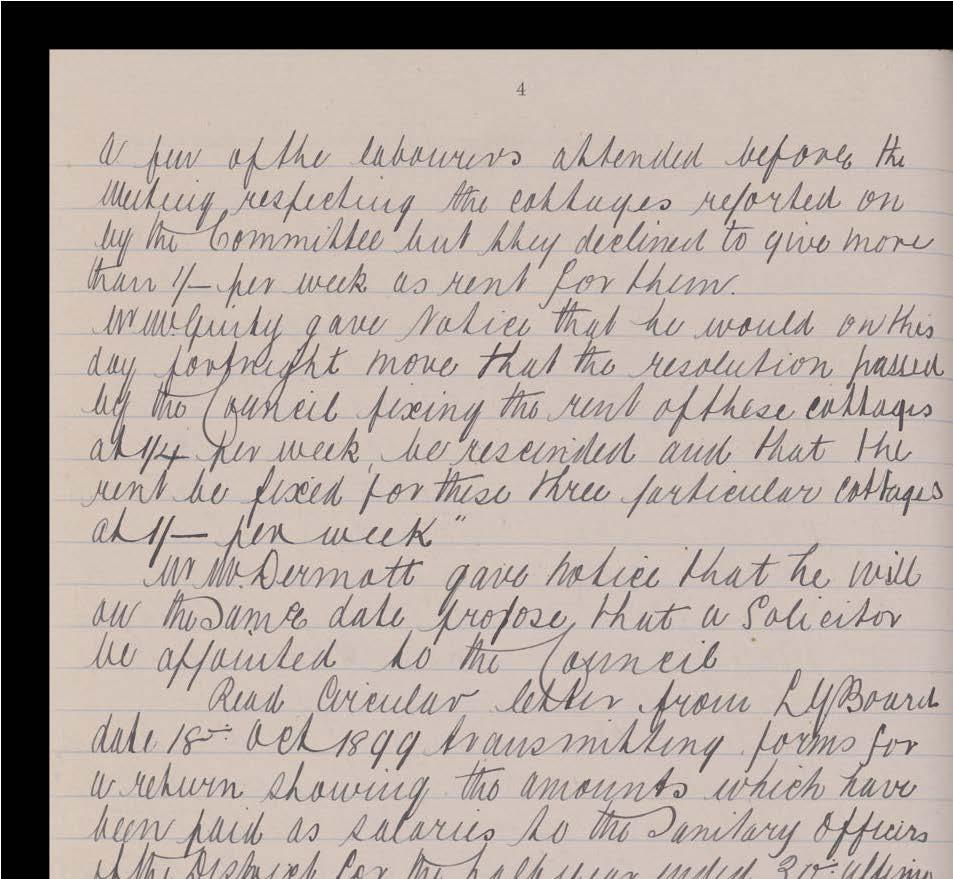 4
A few of the labourers attended before the
Meeting respecting the cottages reported on
by the Committee but they declined to give more
than 1/- per week as rent for them.
Mr McGuirky gave Notice that he would on this
day fortnight move that the resolution passed
by the Council fixing the rent of these cottages
at 1/4 per week, be rescinded and that the
rent be fixed for these three particular cottages
at 1/- per week"
Mr McDermott gave Notice that he will
on the same date propose that a Solicitor
be appointed to the Council
Read Circular letter from LGBoard
date 18th Oct 1899 transmitting forms for
a return showing the amounts which have
been paid as salaries to the Sanitary Officers
of the District for the half year ended 30th ultimo